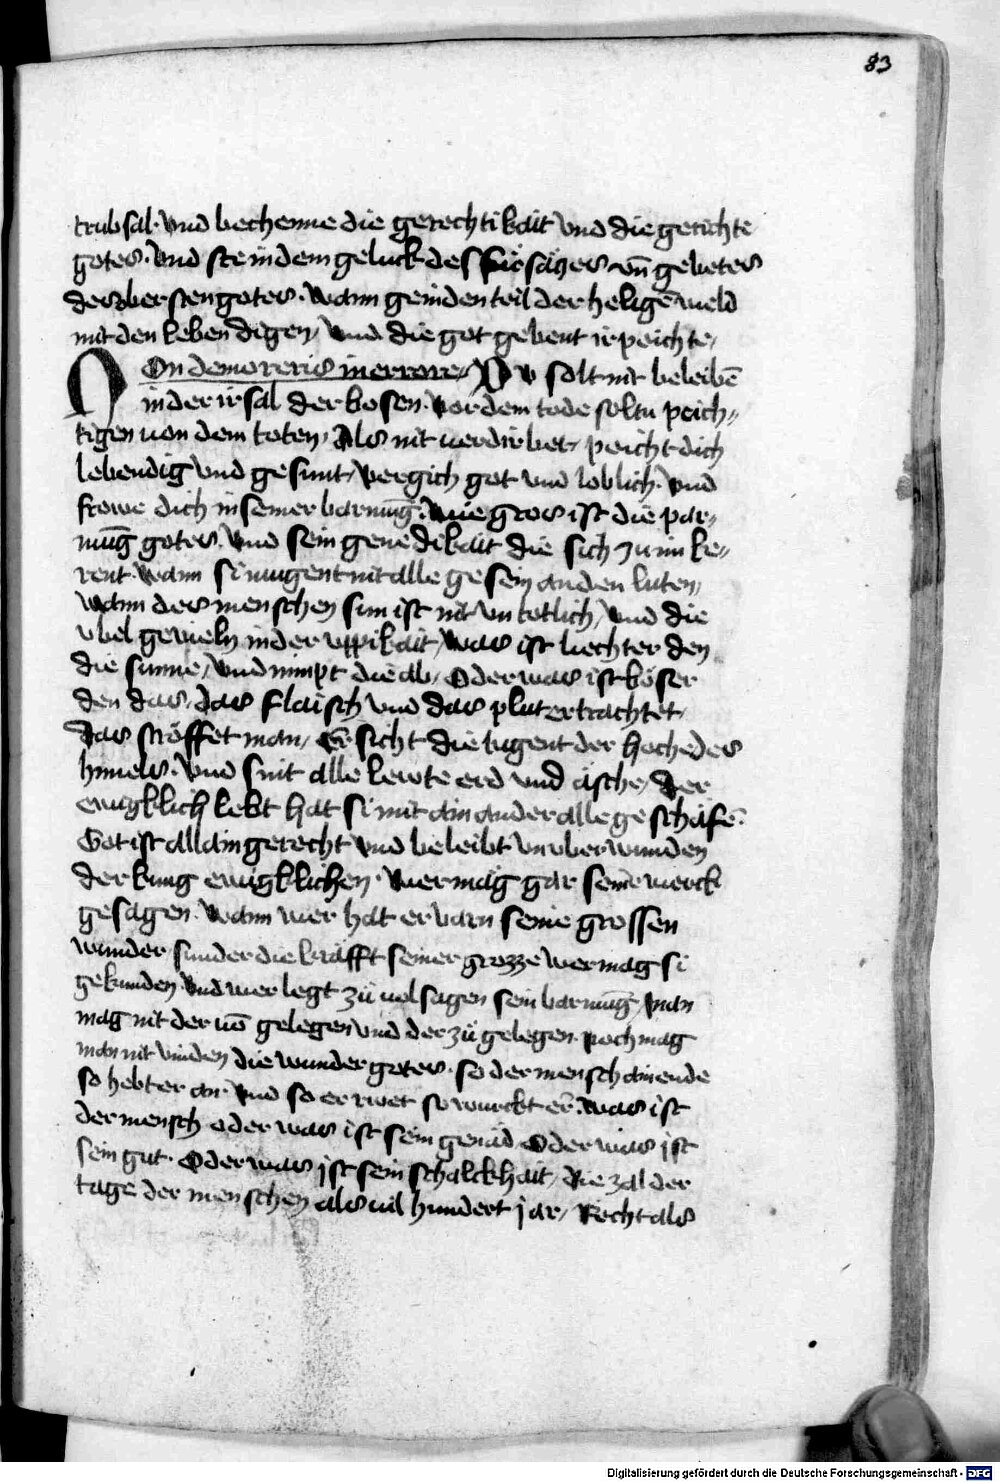 83
trubsal · vnd bechenne die gerechtikait vnd die gerichte
gotes · vnd ste in dem geluck des fürsaczes vn̄ gebetes
des obersten gotes · wann ge in den teil der heligē weld
mit den lebendigen / vnd die got gebent ir peichte /
NOn demoreris in errore / DV solt nit beleibē
in der irsal der bosen · vor dem tode soltu peich„
tigen von dem toten / Als nit verdirbet / peicht dich
lebendig vnd gesunt / vergich got vnd loblich · vnd
frowe dich in seiner barmūg · wie gros ist die par„
mūg gotes · vnd sein genedikait die sich zu im ke„
rent · wann si mugent nit alle gesein an den luten /
wann des menschen sun ist nit vntotlich / vnd die
vbel gevieln in der vppikait / was ist liechter den
die sunne / vnd nimpt die ab / Oder was ist böser
den das / das flaisch vnd das plut ertrachtet /
das ströffet man / Er sicht die tugent der hoche des
himels · vnd sint alle lewte erd vnd äsche / Der
ewigklich lebt hat si mit ainander alle geschäfē ·
Got ist allain gerecht vnd beleibt vnvberwunden
der kung ewigklichen · wer mag gar seine werck
gesagen · wann wer hat ervarn seine grossen
wunder sunder die kräfft seiner grozze wer mag si
gekunden vnd wer legt zů volsagen sein barmūg / man
mag nit der vō gelegen vnd der zů gelegen · noch mag
man nit vinden die wunder gotes · so der mensch ain ende
so hebt er an · vnd so er rwet so wurckt er · was ist
der mensch oder was ist sein genäd Oder was ist
sein gut · Oder was ist sein schalckhait / die zal der
tage der menschen als vil hundert jar / Recht als
Digitalisierung gefördert durch die Deutsche Forschungsgemeinschaft - DFG